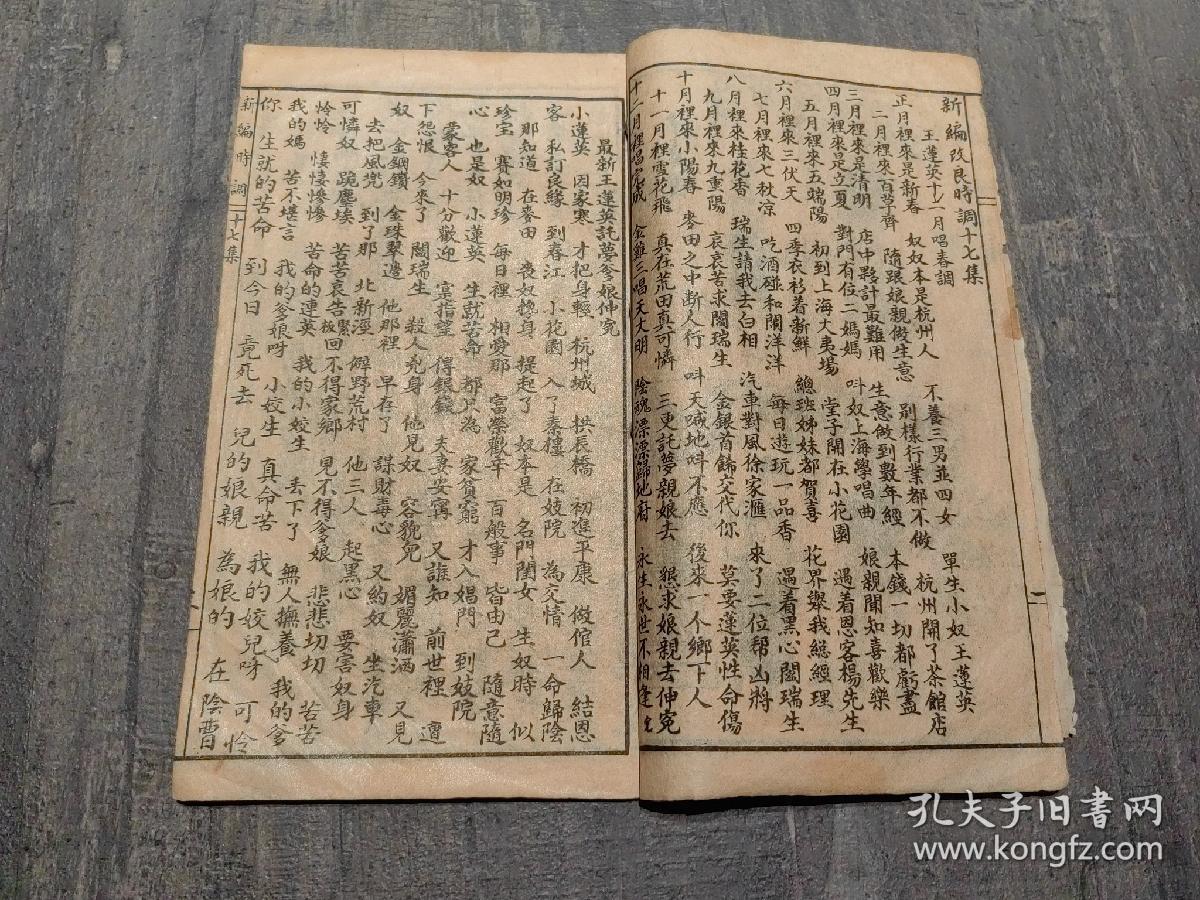 新編改良時調十七集
王蓮英十二月唱春調
正月裡來是新春 奴奴本是杭州人 不養三男並四女 單生小奴王蓮英
二月裡來百草齊 隨跟娘親做生意 別樣行業都不做 杭州開了茶館店
三月裡來是清明 店中夥計最難用 生意做到數年經 本錢一切都虧盡
四月裡來是立夏 對門有位二媽媽 叫奴上海學唱曲 娘親聞知喜歡樂
五月裡來五端陽 初到上海大夷場 堂子開在小花園 遇着恩客楊先生
六月裡來三伏天 四季衣衫着新鮮 總班姊妹都賀喜 花界舉我總經理
七月裡來七秋凉 吃酒碰和鬧洋洋 每日遊玩一品香 遇着黑心閻瑞生
八月裡來桂花香 瑞生請我去白相 汽車對風徐家滙 來了二位帮凶將
九月裡來九重陽 哀哀苦求閻瑞生 金銀首飾交代你 莫要蓮英性命傷
十月裡來小陽春 麥田之中断人行 叫天喊地叫不應 後來一个鄉下人
十一月裡雪花飛 真在荒田真可憐 三更託夢親娘去 懇求娘親去伸寃
十二月裡唱完成 金雞三唱天大明 陰魂漂漂歸地府 永生永世不相逢
最新王蓮英託夢爹娘伸寃
小蓮英 因家寒 才把身輕 杭州城 拱長橋 初進平康 做倌人 結恩
客 私訂良緣 到春江 小花園 入了秦樓 在妓院 為交情 一命歸陰
那知道 在麥田 喪奴殘身 提起了 奴本是 名門閨女 生奴時 似
珍宝 賽如明珍 每日裡 相愛那 富榮歡幸 百般事 皆由己 隨意隨
心 也是奴 小蓮英 生就苦命 都只為 家貧窮 才入娼門 到妓院
蒙客人 十分歡迎 寔指望 得銀錢 夫妻安寗 又誰知 前世裡 遭
下怨恨 今來了 閻瑞生 殺人兇身 他見奴 容貌兒 媚麗瀟洒 又見
奴 金鋼鑽 金珠翠邊 他那裡 早存了 謀財毒心 又約奴 坐汽車
去把風兜 到了那 北新涇 僻野荒村 他三人 起黑心 要害奴身
可憐奴 跪塵埃 苦苦哀告 緊極回不得家鄉 見不得爹娘 悲悲切切 苦苦
怜怜 悽悽慘慘 苦命的連英 我的小姣生 丢下了 無人撫養 我的爹
我的媽 苦不堪言 我的爹娘呀 小姣生 真命苦 我的姣兒呀 可怜
你 生就的苦命 到今日 竟死去 兒的娘親 為娘的 在陰曹
新編時調 十七集
孔夫子旧書网
www.kongfz.com